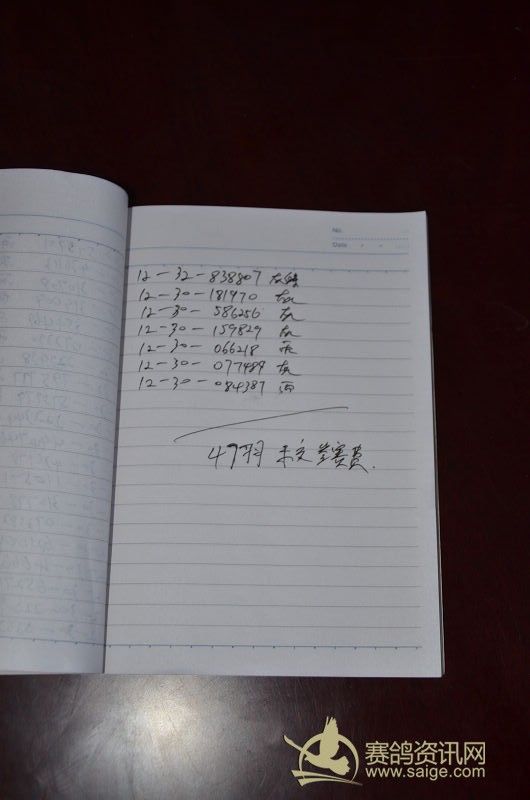 No.
Date
12-32-838807 灰
12-30-181970 灰
12-30-586256 灰
12-30-159829 灰
12-30-066218 雨
12-30-077489 灰
12-30-084387 雨
47羽 未交 赛费.
赛鸽资讯网
www.saige.com